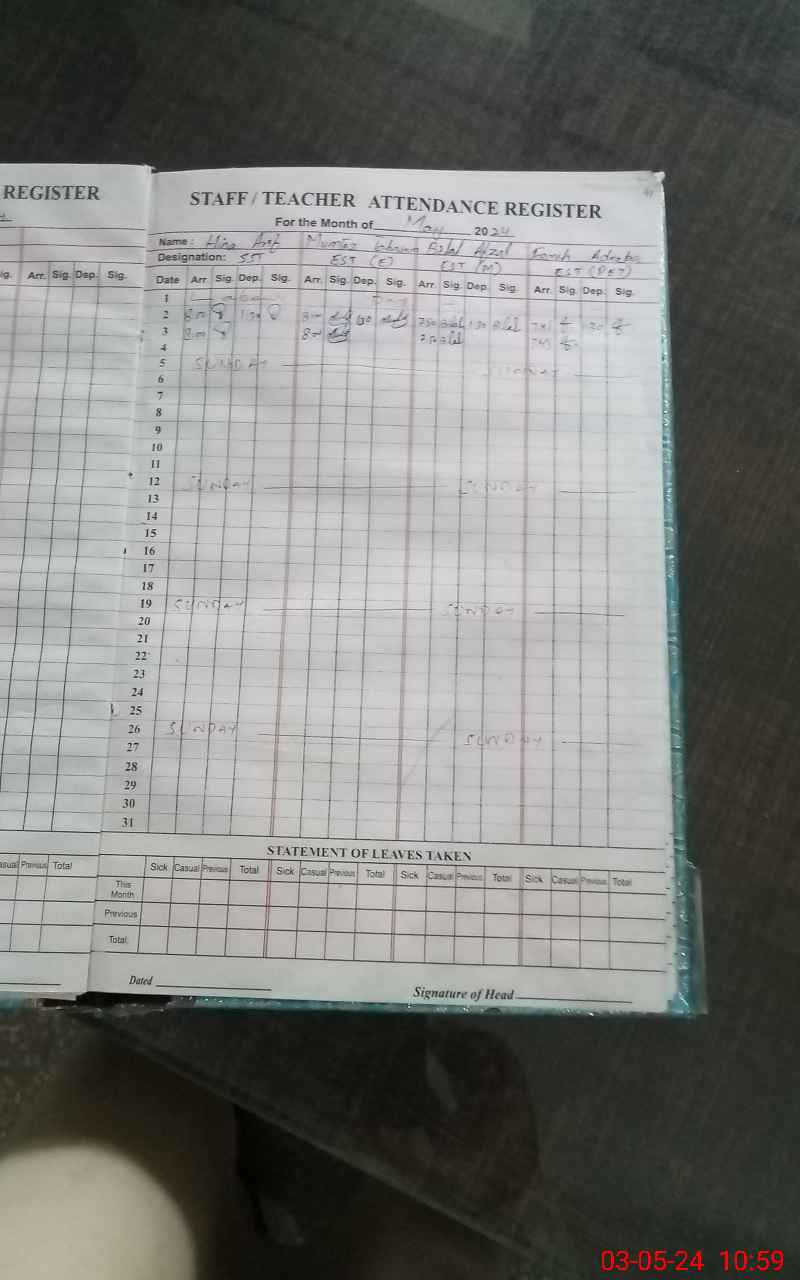 REGISTER
STAFF / TEACHER ATTENDANCE REGISTER
For the Month of May 2024
Name: Hina Arif Mumtaz Bilal Afzal Farah
Designation: SST EST (E) EST (M) EST (PET)
ig. Arr. Sig. Dep. Sig. Date Arr. Sig. Dep. Sig. Arr. Sig. Dep. Sig. Arr. Sig. Dep. Sig. Arr. Sig. Dep. Sig.
1 Labour Day
2 8:00 1:30 8:00 1:30 7:50 Bilal 1:30 Bilal 7:45 1:30
3 8:00 8:00 7:50 Bilal 7:45
4
5 SUNDAY SUNDAY
6
7
8
9
10
11
12 SUNDAY SUNDAY
13
14
15
16
17
18
19 SUNDAY SUNDAY
20
21
22
23
24
25
26 SUNDAY SUNDAY
27
28
29
30
31
STATEMENT OF LEAVES TAKEN
asual Previous Total Sick Casual Previous Total Sick Casual Previous Total Sick Casual Previous Total Sick Casual Previous Total
This Month
Previous
Total
Dated
Signature of Head
03-05-24 10:59